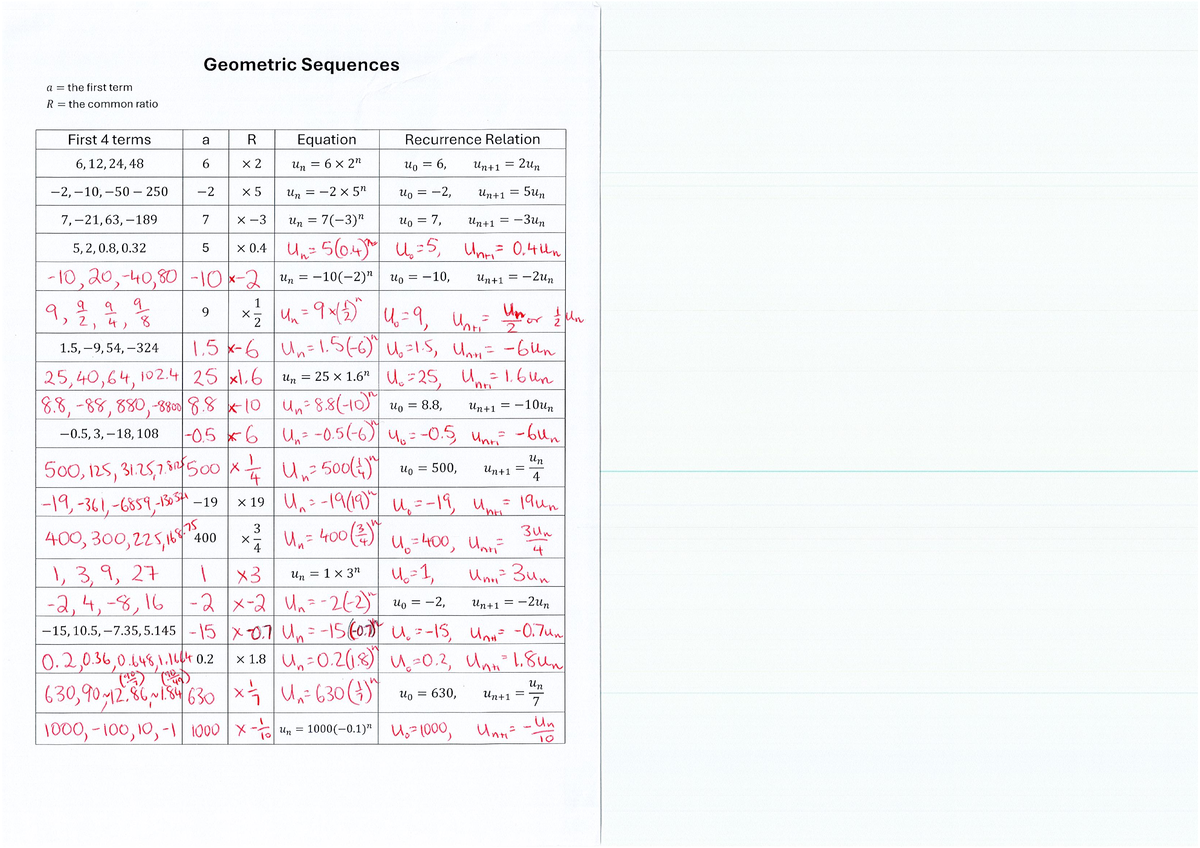 Geometric Sequences
a = the first term
R = the common ratio
First 4 terms a R Equation Recurrence Relation
6, 12, 24, 48 6 × 2 uₙ = 6 × 2ⁿ u₀ = 6, uₙ₊₁ = 2uₙ
−2, −10, −50 − 250 −2 × 5 uₙ = −2 × 5ⁿ u₀ = −2, uₙ₊₁ = 5uₙ
7, −21, 63, −189 7 × −3 uₙ = 7(−3)ⁿ u₀ = 7, uₙ₊₁ = −3uₙ
5, 2, 0.8, 0.32 5 × 0.4 Uₙ = 5(0.4)ⁿ U₀ = 5, Uₙ₊₁ = 0.4Uₙ
-10, 20, -40, 80 -10 ×-2 uₙ = −10(−2)ⁿ u₀ = −10, uₙ₊₁ = −2uₙ
9, 9/2, 9/4, 9/8 9 × 1/2 Uₙ = 9×(1/2)ⁿ U₀ = 9, Uₙ₊₁ = Uₙ/2 or 1/2 Uₙ
1.5, −9, 54, −324 1.5 ×-6 Uₙ = 1.5(-6)ⁿ U₀ = 1.5, Uₙ₊₁ = -6Uₙ
25, 40, 64, 102.4 25 ×1.6 uₙ = 25 × 1.6ⁿ U₀ = 25, Uₙ₊₁ = 1.6Uₙ
8.8, -88, 880, -8800 8.8 ×-10 Uₙ = 8.8(-10)ⁿ u₀ = 8.8, uₙ₊₁ = −10uₙ
−0.5, 3, −18, 108 -0.5 ×-6 Uₙ = -0.5(-6)ⁿ U₀ = -0.5, Uₙ₊₁ = -6Uₙ
500, 125, 31.25, 7.8125 500 × 1/4 Uₙ = 500(1/4)ⁿ u₀ = 500, uₙ₊₁ = uₙ/4
-19, -361, -6859, -130321 −19 × 19 Uₙ = -19(19)ⁿ U₀ = -19, Uₙ₊₁ = 19Uₙ
400, 300, 225, 168.75 400 × 3/4 Uₙ = 400(3/4)ⁿ U₀ = 400, Uₙ₊₁ = 3Uₙ/4
1, 3, 9, 27 1 ×3 uₙ = 1 × 3ⁿ U₀ = 1, Uₙ₊₁ = 3Uₙ
-2, 4, -8, 16 -2 ×-2 Uₙ = -2(-2)ⁿ u₀ = −2, uₙ₊₁ = −2uₙ
−15, 10.5, −7.35, 5.145 -15 ×-0.7 Uₙ = -15(-0.7)ⁿ U₀ = -15, Uₙ₊₁ = -0.7Uₙ
0.2, 0.36, 0.648, 1.1664 0.2 × 1.8 Uₙ = 0.2(1.8)ⁿ U₀ = 0.2, Uₙ₊₁ = 1.8Uₙ
(90/7) (90/49)
630, 90 ~12.86, ~1.84 630 × 1/7 Uₙ = 630(1/7)ⁿ u₀ = 630, uₙ₊₁ = uₙ/7
1000, -100, 10, -1 1000 × -1/10 uₙ = 1000(−0.1)ⁿ U₀ = 1000, Uₙ₊₁ = -Uₙ/10